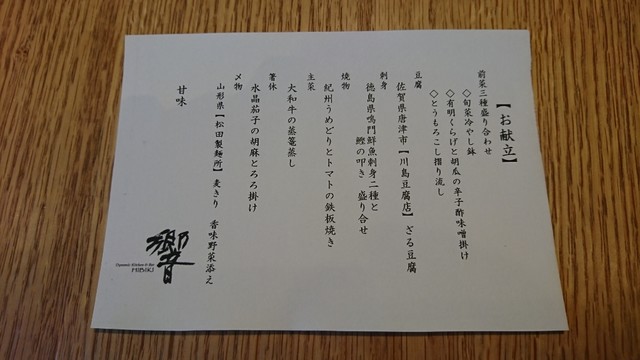 【お献立】
前菜三種盛り合わせ
◇旬菜冷やし鉢
◇有明くらげと胡瓜の辛子酢味噌掛け
◇とうもろこし摺り流し
豆腐
佐賀県唐津市【川島豆腐店】ざる豆腐
刺身
徳島県鳴門鮮魚刺身二種と
鰹の叩き 盛り合せ
焼物
紀州うめどりとトマトの鉄板焼き
主菜
大和牛の蒸篭蒸し
箸休
水晶茄子の胡麻とろろ掛け
〆物
山形県【松田製麺所】麦きり 香味野菜添え
甘味
響
Dynamic Kitchen & Bar
HIBIKI